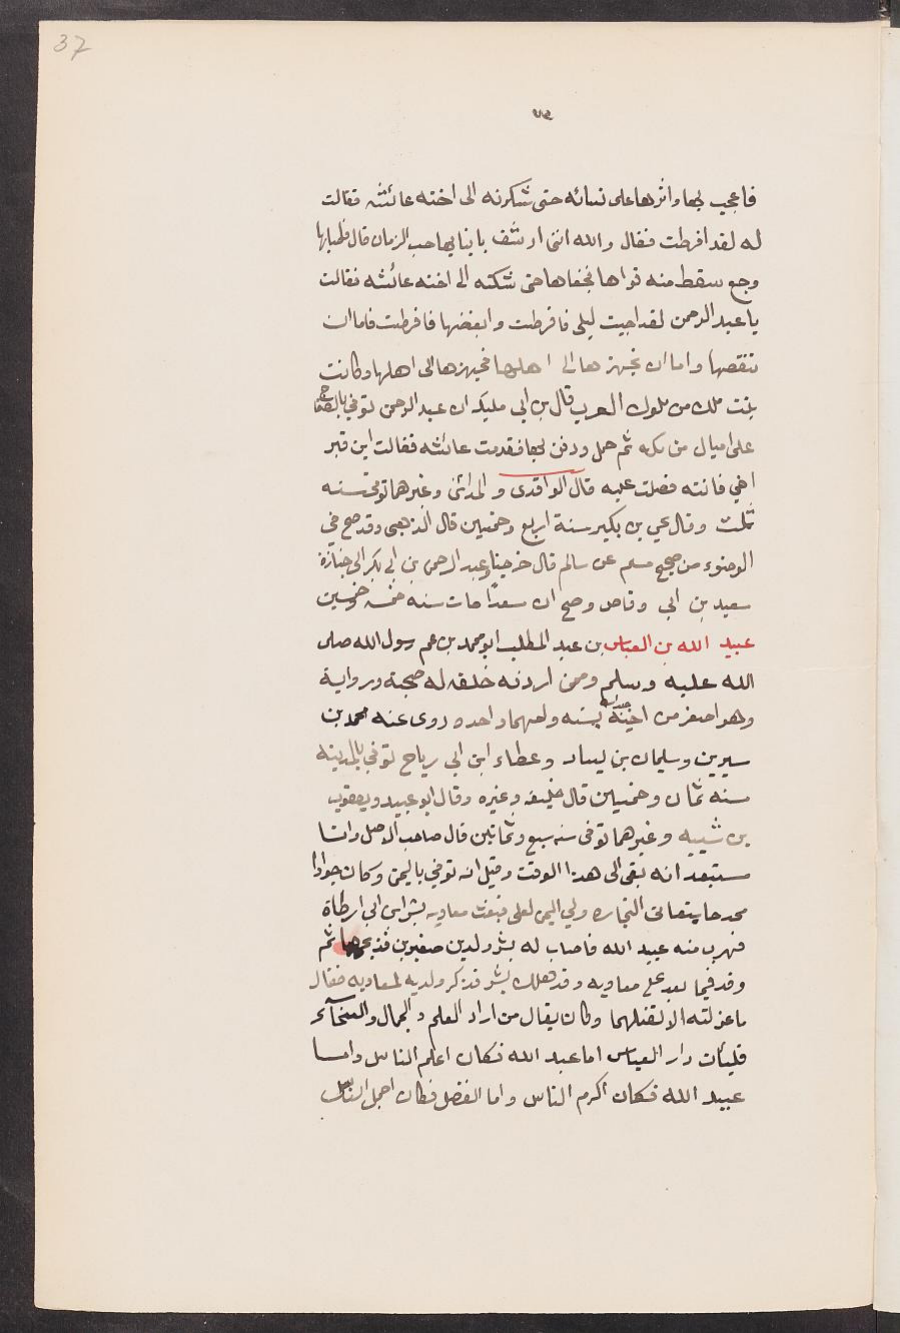 37
٧٣
فاعجب بها واثرها على نسائه حتى شكرنه الى اخته عائشه فقالت
له لقد افرطت فقال والله انني ارشف بانيابها حب الرمان قال فاصابها
وجع سقط منه فواها فجفاها حتى شكته الى اخته عائشه فقالت
يا عبد الرحمن لقد احببت ليلى فافرطت وابغضتها فافرطت فاما ان
تنصفها واما ان تجهزها الى اهلها فجهزها الى اهلها وكانت
بنت ملك من ملوك العرب قال بن ابي مليكه ان عبد الرحمن توفي بالصفاح
على اميال من مكه ثم حمل ودفن بها فقدمت عائشه فقالت اين قبر
اخي فاتته فصلت عليه قال الواقدى و المدائني وغيرهما توفي سنه
ثلث وقال يحي بن بكير سنة اربع وخمسين قال الذهبى وقد صح في
الوضوء من صحيح مسلم عن سالم قال خرجنا وعبد الرحمن بن ابي بكر الى جنازة
سعيد بن ابي وقاص وصح ان سعدا مات سنه خمسه خمسين
عبيد الله بن العباس بن عبد المطلب ابو محمد بن عم رسول الله صلى
الله عليه وسلم وممن اردفه خلفه له صحبة ورواية
وهو اصغر من اخيه عبد الله بسنه وامهما واحده روى عنه محمد بن
سيرين وسليمان بن يسار وعطاء ابن ابي رباح توفي بالمدينه
سنه ثمان وخمسين قال خليفه وغيره وقال ابو عبيد ويعقوب
بن شيبه وغيرهما توفى سنه سبع وثمانين قال صاحب الاصل وانا
مستبعد انه بقى الى هذا الوقت وقيل انه توفي باليمن وكان جوادا
ممدحا يتعانى التجاره ولي اليمن لعلي فبعث معاويه بشر ابن ابي ارطاة
فهرب منه عبيد الله فاصاب له بشر ولدين صغيرين فذبحهما ثم
وفد فيما بعد على معاويه وقد هلك بشر فذكر ولديه لمعاويه فقال
ما عزلته الا لقتلهما وكان يقال من اراد العلم والجمال والسخآء
فليأت دار العباس اما عبد الله فكان اعلم الناس واما
عبيد الله فكان اكرم الناس واما الفضل فكان اجمل الناس